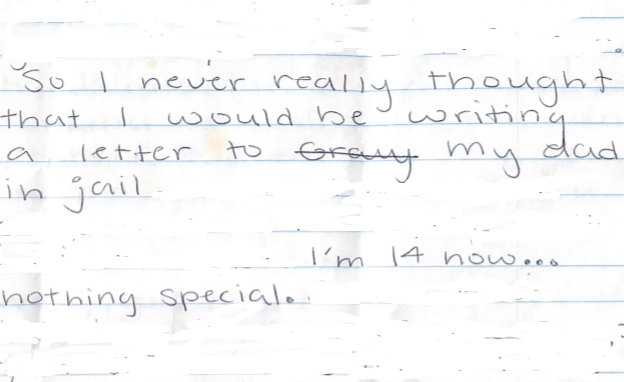 So I never really thought
that I would be writing
a letter to my dad
in jail
I'm 14 now...
nothing special.